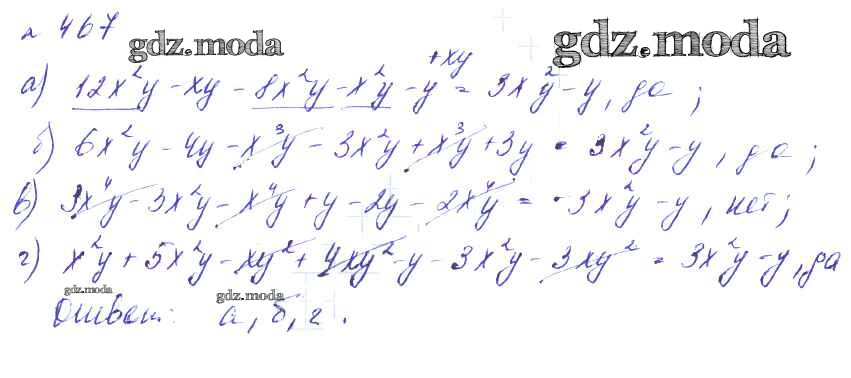 № 467
gdz.moda gdz.moda
а) 12x²y - xy - 8x²y - x²y - y + xy = 3x²y - y, да;
б) 6x²y - 4y - x³y - 3x²y + x³y + 3y = 3x²y - y, да;
в) 3x⁴y - 3x²y - x⁴y + y - 2y - 2x⁴y = -3x²y - y, нет;
г) x²y + 5x²y - xy² + 4xy² - y - 3x²y - 3xy² = 3x²y - y, да
gdz.moda gdz.moda
Ответ: а, б, г.